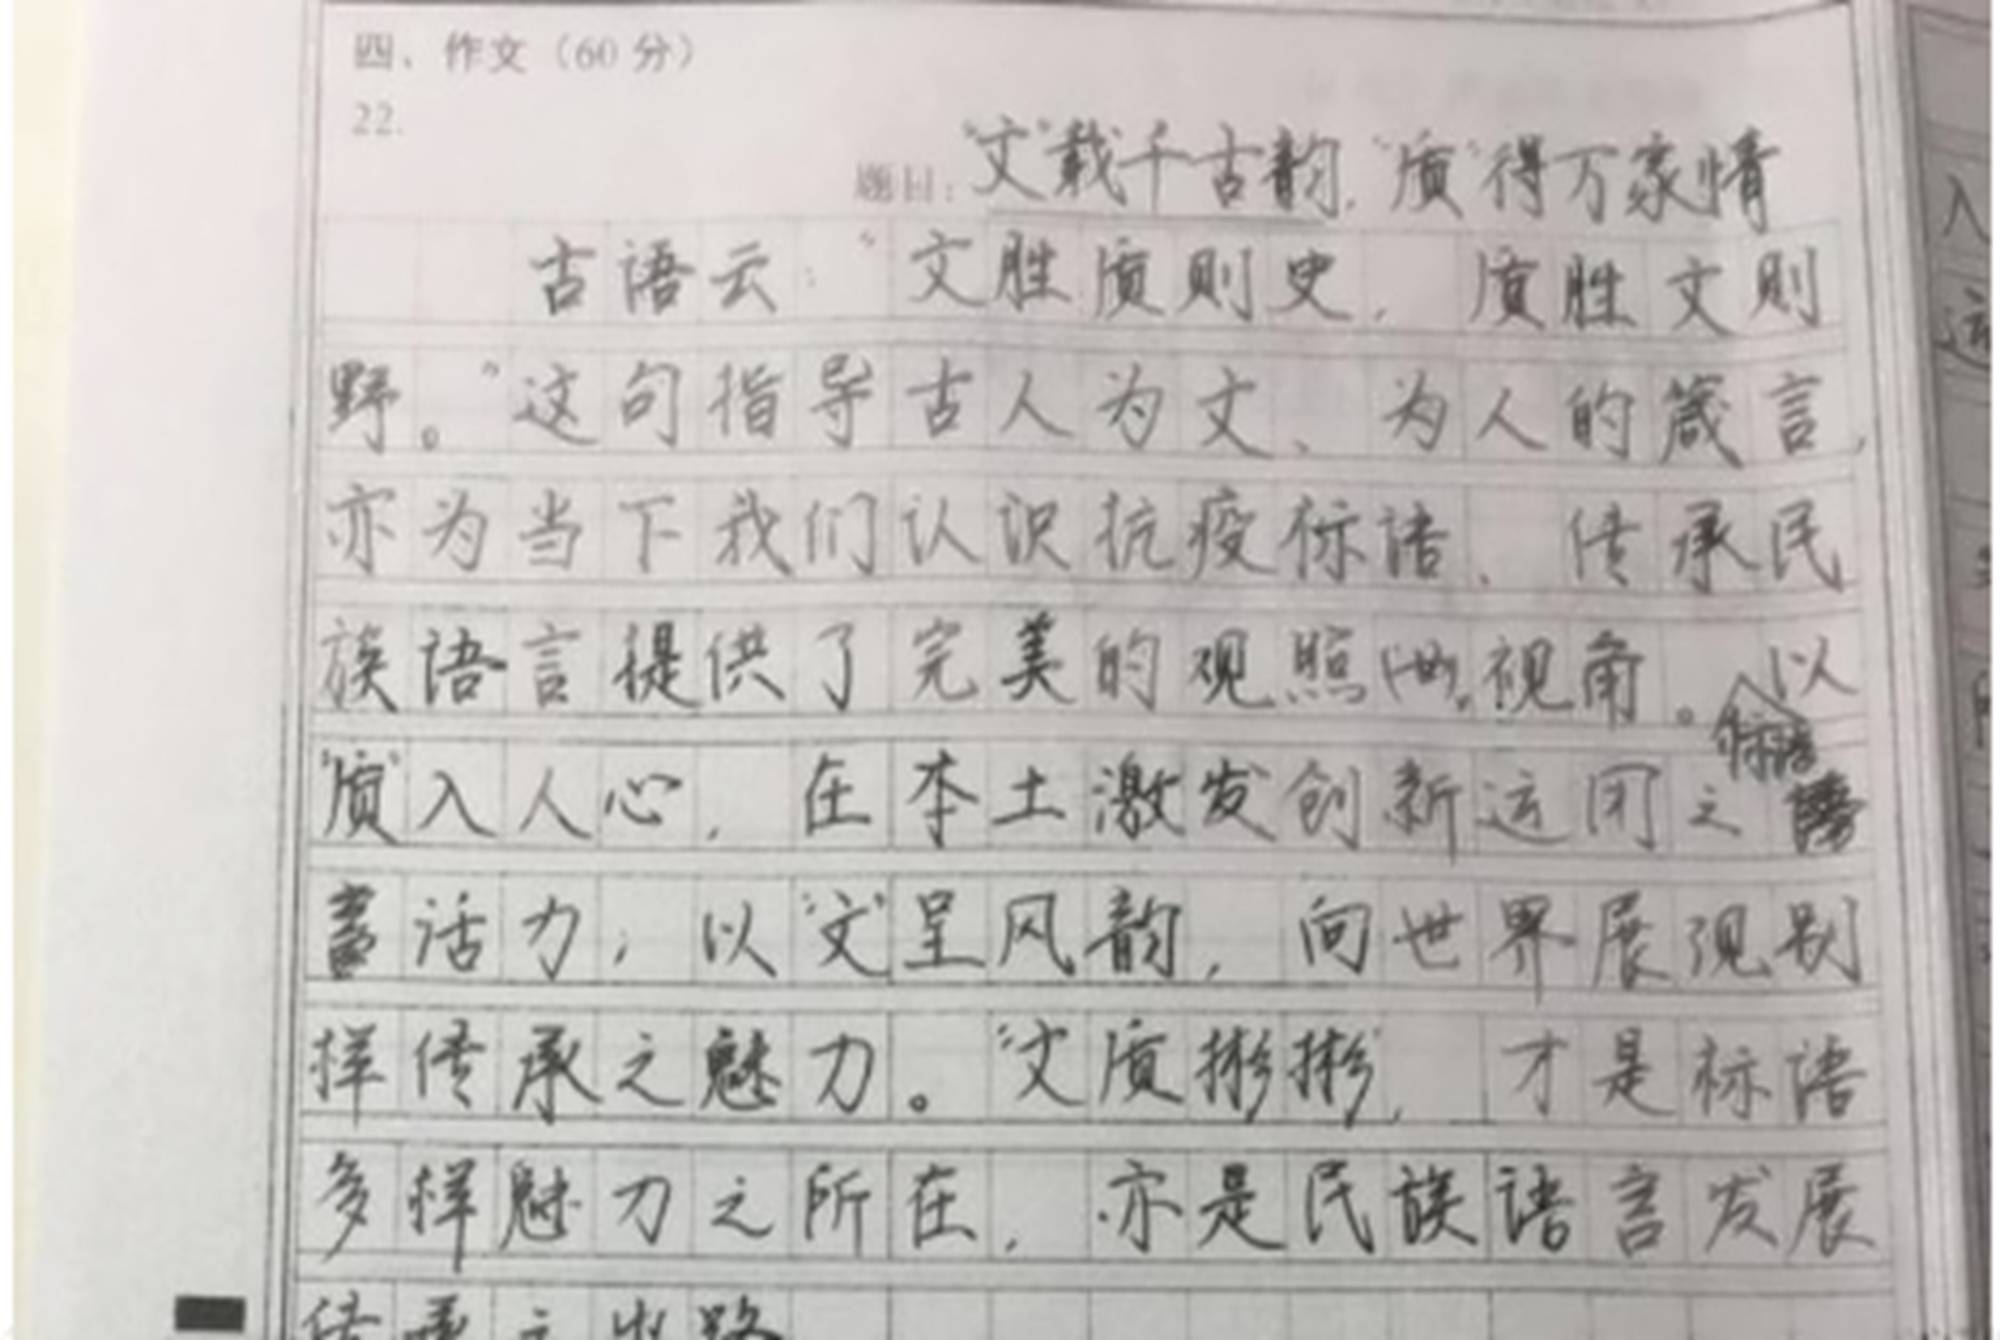 四、作文（60分）
22.
题目：“文”载千古韵，“质”得万家情
古语云：“文胜质则史，质胜文则
野。”这句指导古人为文、为人的箴言，
亦为当下我们认识抗疫标语、传承民
族语言提供了完美的观照视角。以
标语
“质”入人心，在本土激发创新运用之
活力，以“文”呈风韵，向世界展现别
样传承之魅力。“文质彬彬”，才是标语
多样魅力之所在，亦是民族语言发展
传承之出路